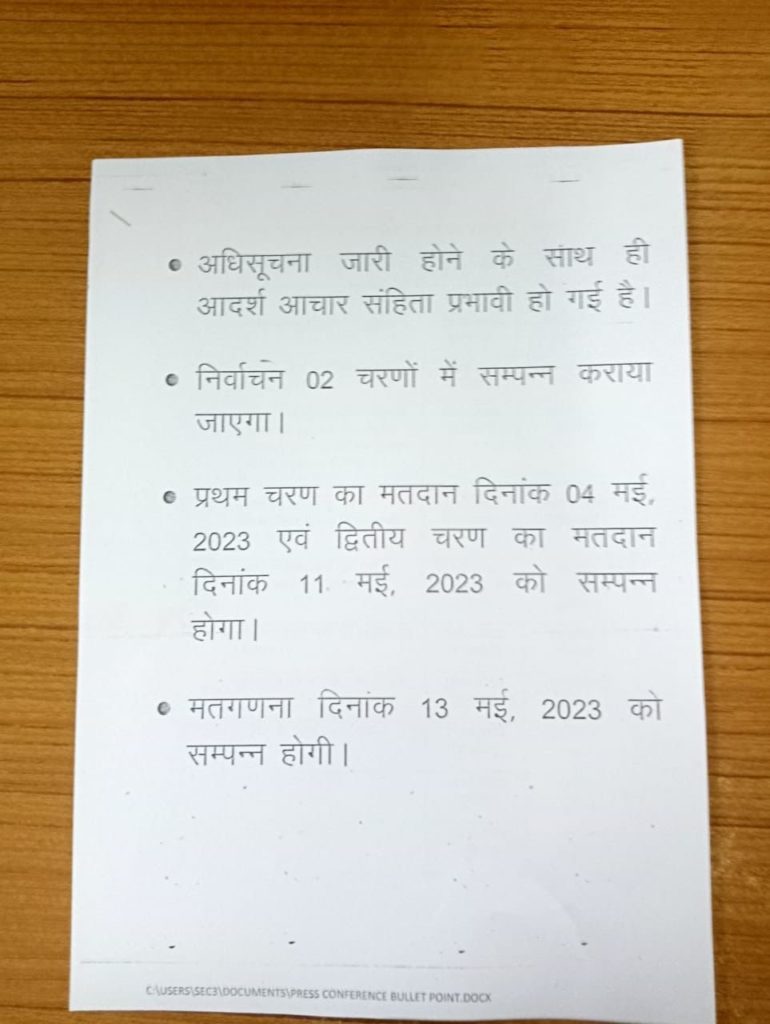 • अधिसूचना जारी होने के साथ ही
आदर्श आचार संहिता प्रभावी हो गई है।
• निर्वाचन 02 चरणों में सम्पन्न कराया
जाएगा।
• प्रथम चरण का मतदान दिनांक 04 मई,
2023 एवं द्वितीय चरण का मतदान
दिनांक 11 मई, 2023 को सम्पन्न
होगा।
• मतगणना दिनांक 13 मई, 2023 को
सम्पन्न होगी।
C:\USERS\SEC3\DOCUMENTS\PRESS CONFERENCE BULLET POINT.DOCX